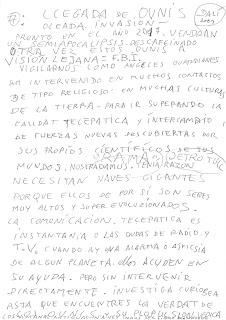 LLEGADA DE OVNIS
OLEADA, INVASION-
PRONTO EN EL AÑO 2017. VENDRAN
UN SEMIAPOCALYPSIS, DESCAFEINADO
OTRA VEZ ESTOS OVNIS A
VISION LEJANA = F.B.I.
VIGILARNOS COMO ANGELES GUARDIANES
HA INTERVENIDO EN MUCHOS CONTACTOS
DE TIPO RELIGIOSO - EN MUCHAS CULTURAS
DE LA TIERRA - PARA IR SUPERANDO LA
CALIDAT TELEPATICA Y INTERCAMBIO
DE FUERZAS NUEVAS DESCUBIERTAS POR
SUS PROPIOS CIENTIFICOS DE SUS
MUNDOS. NOSTRADAMUS
NECESITAN NAVES-GIGANTES
PORQUE ELLOS DE POR SÍ SON SERES
MUY ALTOS Y SUPER EVOLUZIONADOS.
LA COMUNICACION TELEPATICA ES
INSTANTANIA O LAS DUDAS DE RADIO, Y
T.V. CUANDO AY UNA ALARMA O ASFICSIA
DE ALGUN PLANETA. ellos ACUDEN EN
SU AYUDA. PERO SIN INTERVENIR
DIRECTAMENTE. INVESTIGA CURIOSEA
ASTA QUE ENCUENTRES LA VERDAT DE